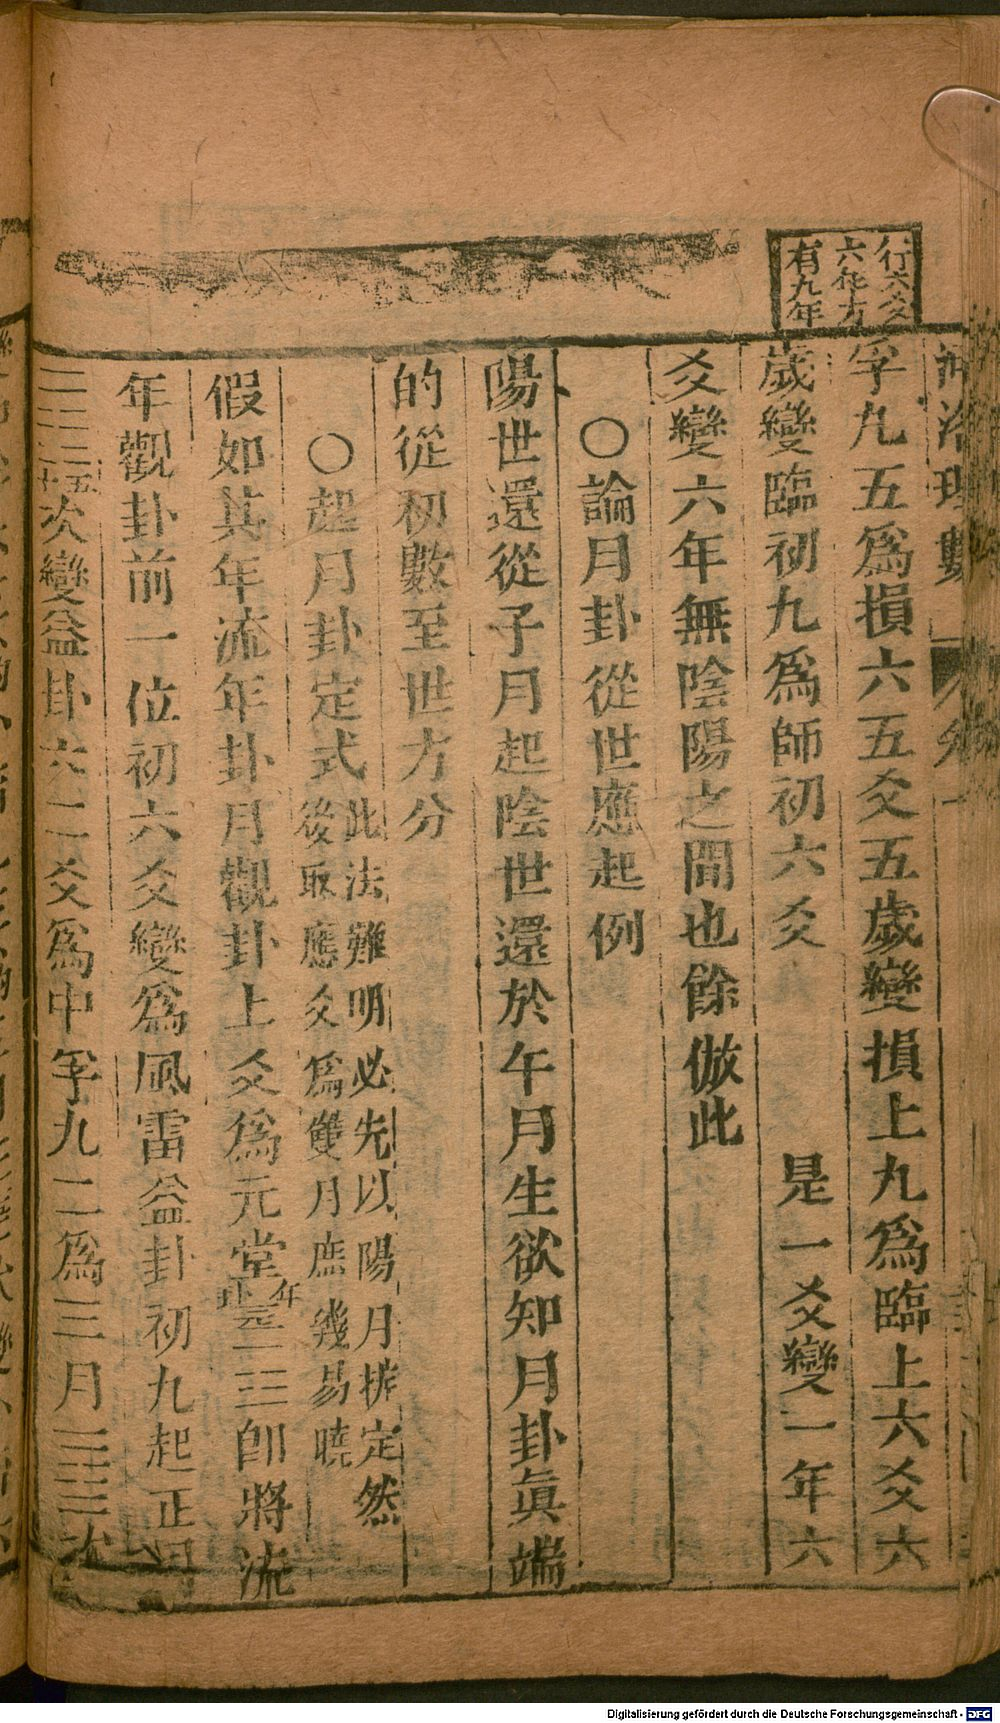 行六爻
六年方
有九年
河洛理數
孚九五爲損六五爻五歲變損上九爲臨上六爻六
歲變臨初九爲師初六爻 是一爻變一年六
爻變六年無陰陽之間也餘倣此
○論月卦從世應起例
陽世還從子月起陰世還於午月生欲知月卦眞端
的從初數至世方分
○起月卦定式此法難明必先以陽月排定然
後取應爻爲雙月庶幾易曉
假如其年流年卦月觀卦上爻爲元堂 即將流
年觀卦前一位初六爻變爲風雷益卦初九起正月
次變益卦六二爻爲中孚九二爲三月 次
Digitalisierung gefördert durch die Deutsche Forschungsgemeinschaft - DFG